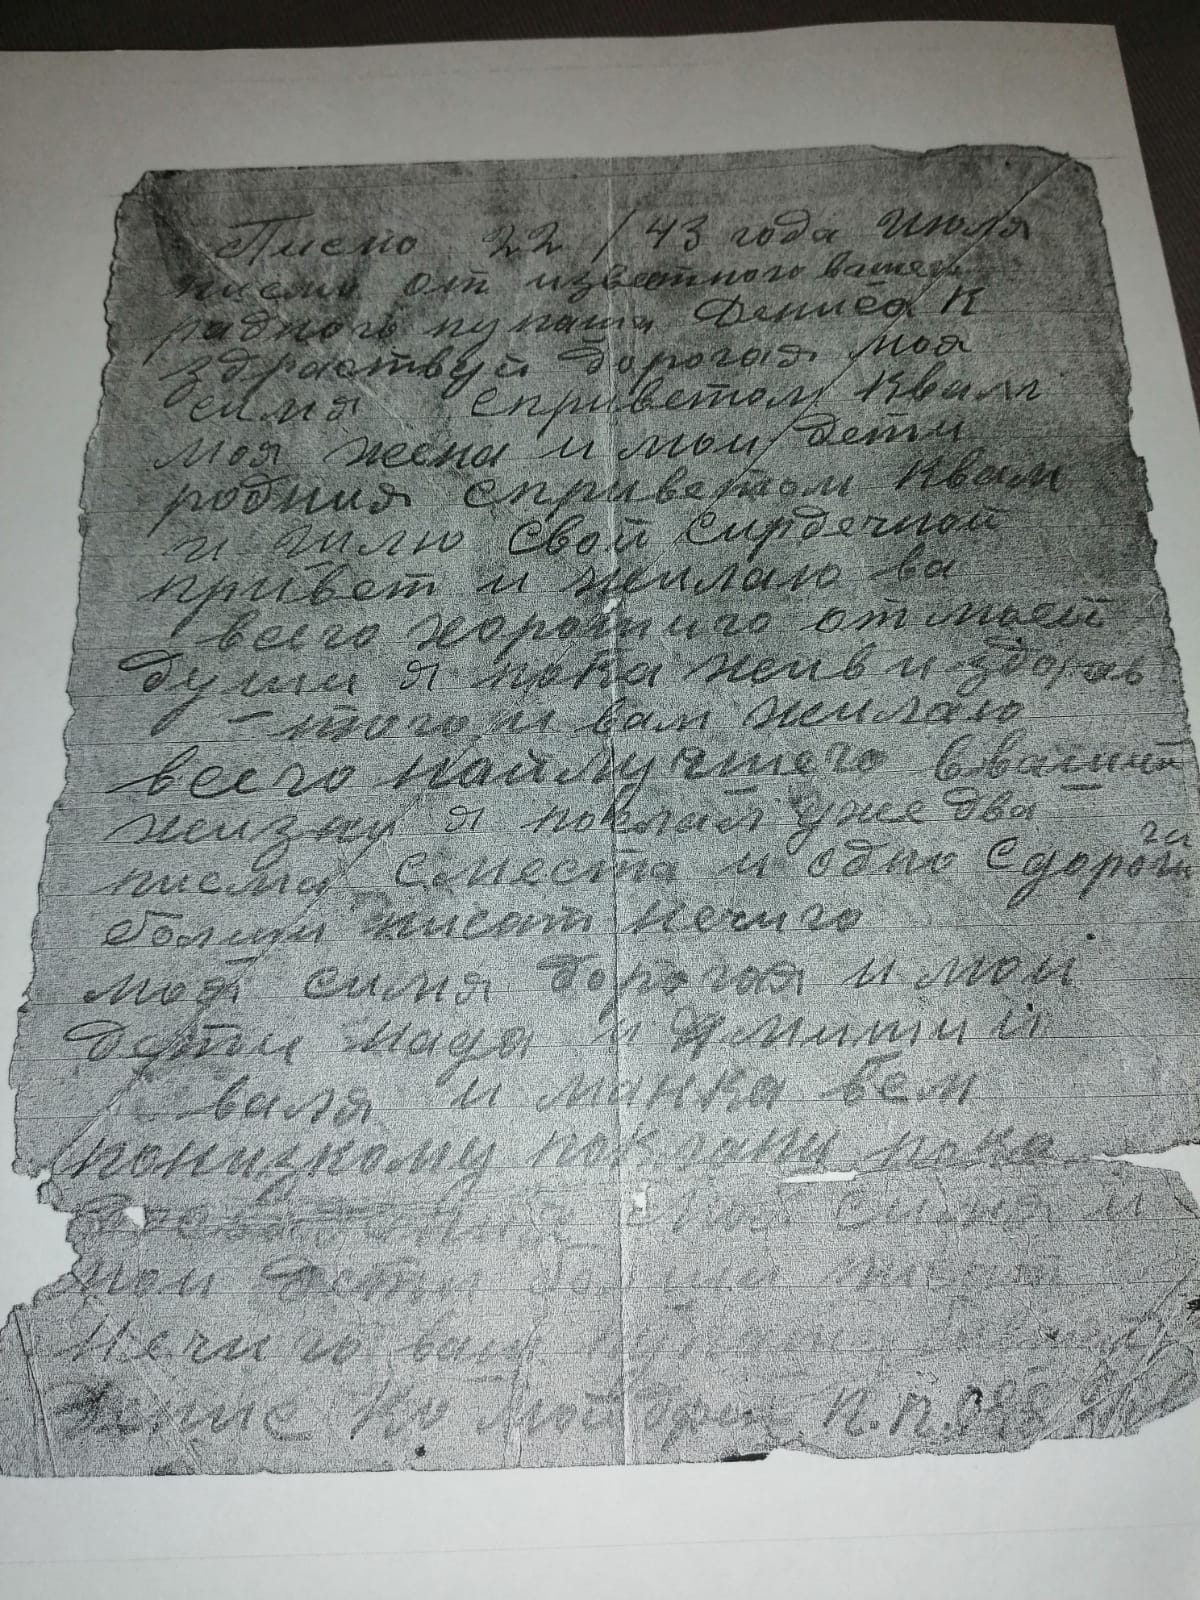 Писмо 22 / 43 года Июля
писмо от известного вашего
радного Дениса К
здраствуй дорогая моя
симя сприветом Квам
моя жена и мои дети
родния сприветом Квам
и шлю свой сирдечной
привет и жилаю ва
всего хорошиго от моей
души я пока жив и здоров
того и вам жилаю
всего найлучшего Ввашей
жизни я послал уже два
писма сместа и одно сдороги
болши писат нечиго
моя симя дорогая и мои
дети надя и
валя и манка всем
понизкому поклону пока
моя симя и
мои дети болши писат
Нечиго ваш
Денис Ко мой адрес П.П.